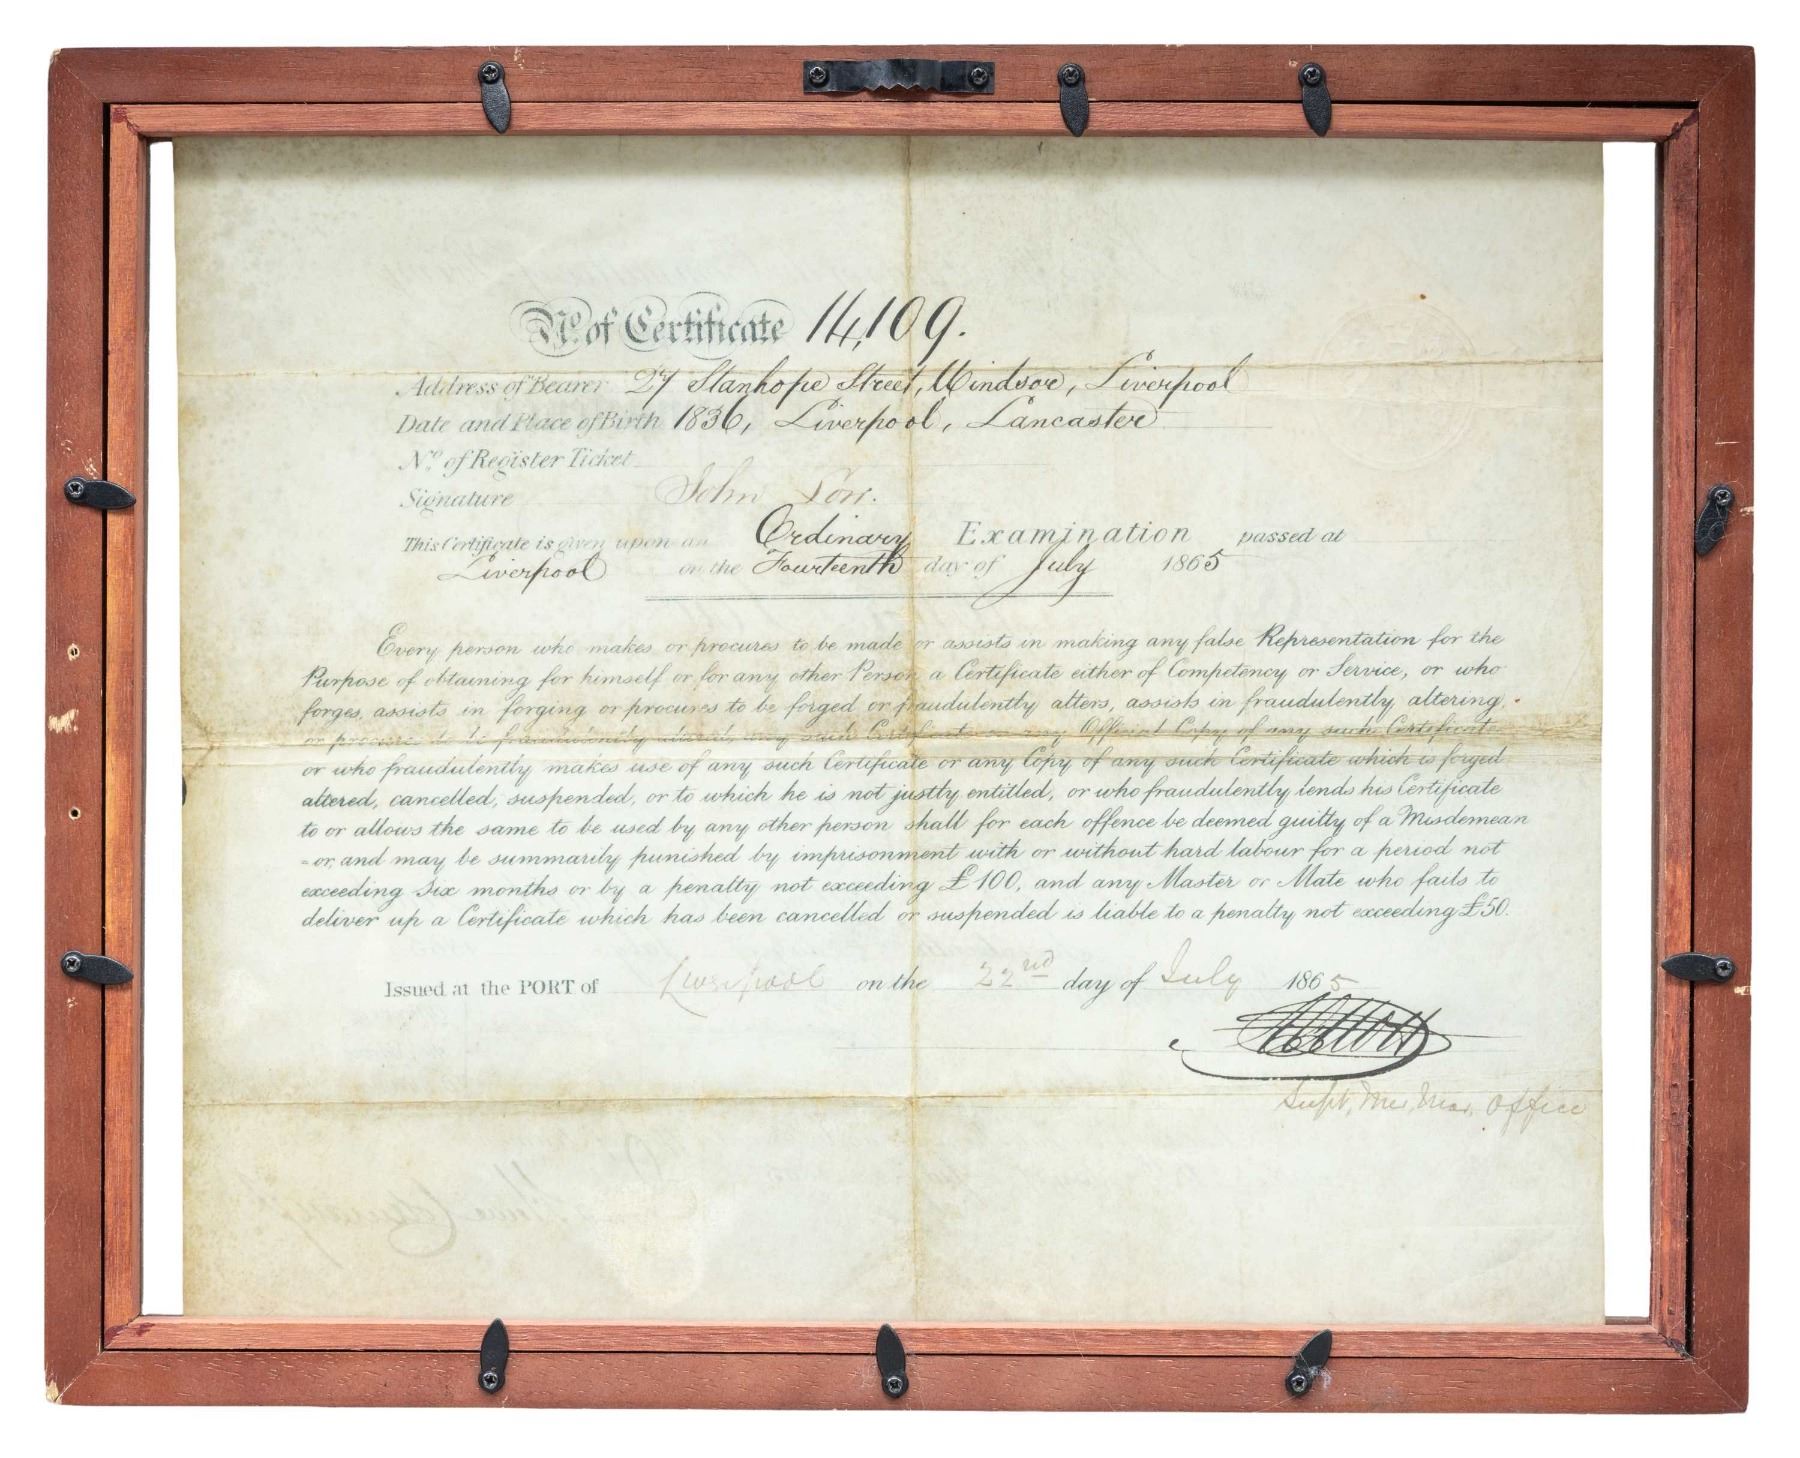 No. of Certificate 14,109.
Address of Bearer 27 Stanhope Street, Windsor, Liverpool
Date and Place of Birth 1836, Liverpool, Lancaster
No. of Register Ticket
Signature John
This Certificate is given upon an Ordinary Examination passed at
Liverpool on the Fourteenth day of July 1865
Every person who makes or procures to be made or assists in making any false Representation for the
Purpose of obtaining for himself or for any other Person a Certificate either of Competency or Service, or who
forges, assists in forging or procures to be forged or fraudulently alters, assists in fraudulently altering
or procures to be fraudulently altered, any such Certificate or any Official Copy of any such Certificate
or who fraudulently makes use of any such Certificate or any Copy of any such Certificate which is forged
altered, cancelled, suspended, or to which he is not justly entitled, or who fraudulently lends his Certificate
to or allows the same to be used by any other person shall for each offence be deemed guilty of a Misdemean
=or, and may be summarily punished by imprisonment with or without hard labour for a period not
exceeding Six months or by a penalty not exceeding £100, and any Master or Mate who fails to
deliver up a Certificate which has been cancelled or suspended is liable to a penalty not exceeding £50.
Issued at the PORT of Liverpool on the 22nd day of July 1865
Supt, Mer, Mar, Office